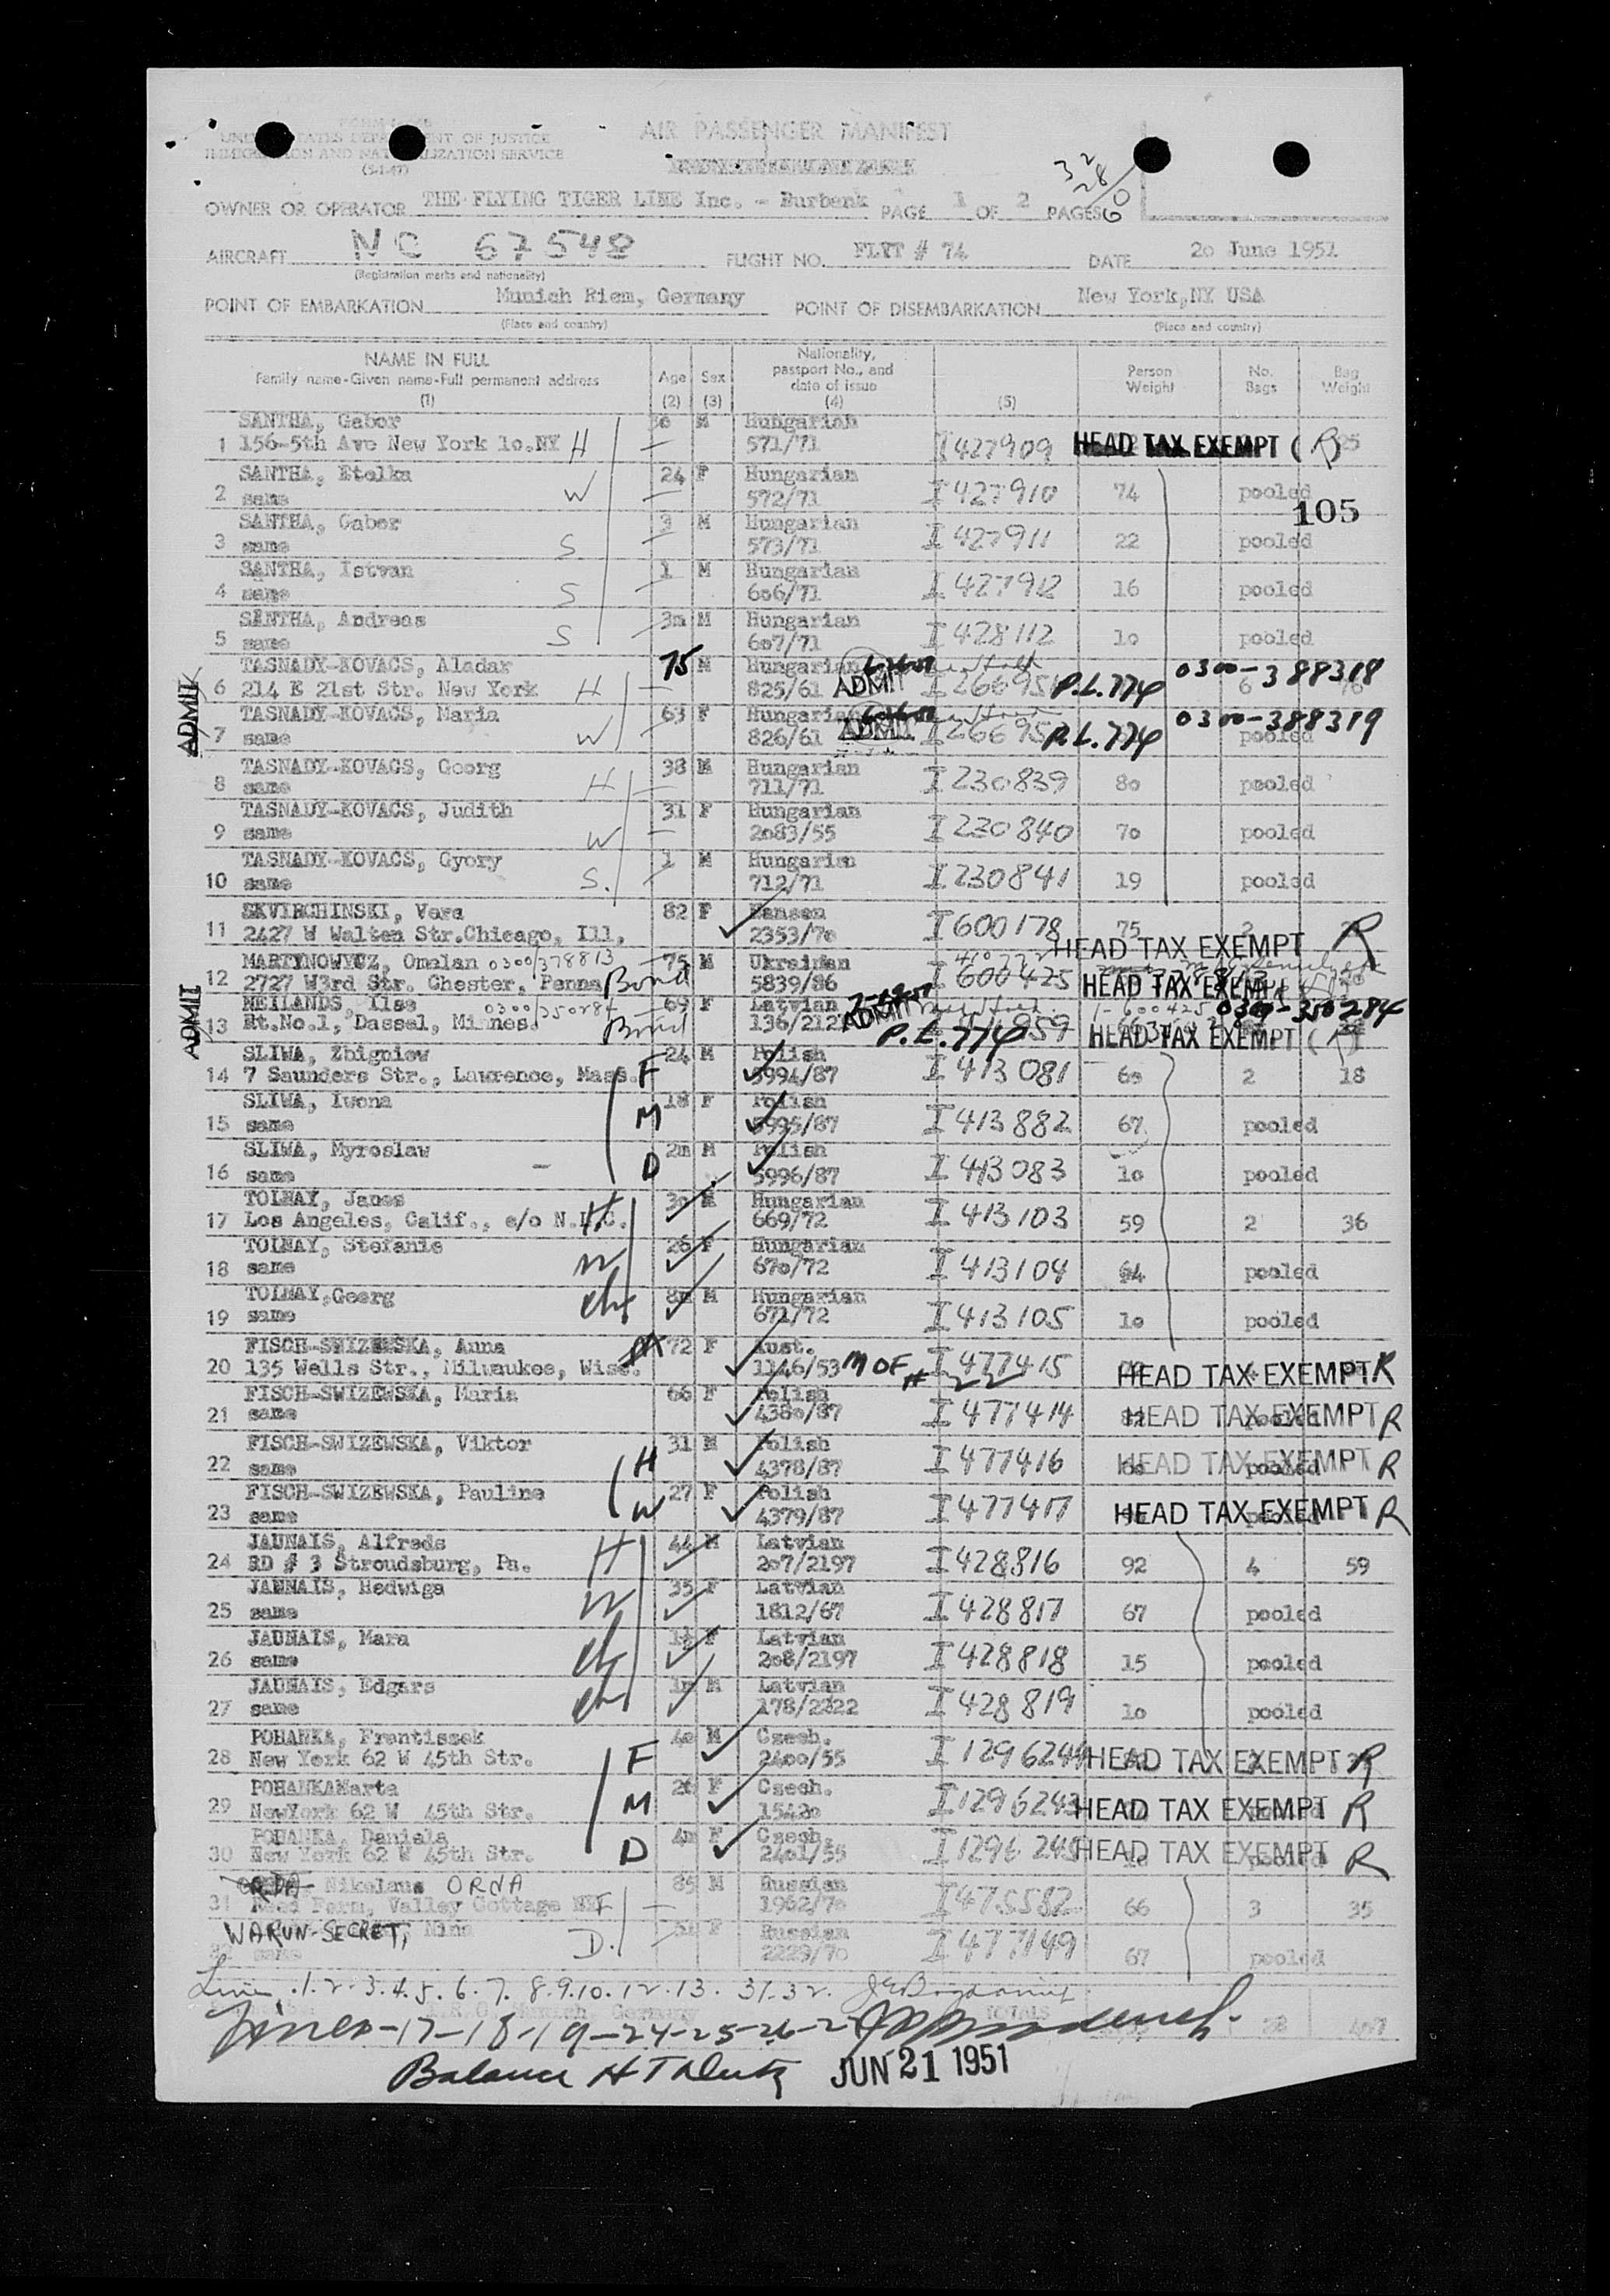 UNITED STATES DEPARTMENT OF JUSTICE
IMMIGRATION AND NATURALIZATION SERVICE
AIR PASSENGER MANIFEST
32
28
60
OWNER OR OPERATOR THE FLYING TIGER LINE Inc. - Burbank PAGE 1 OF 2 PAGES
AIRCRAFT NC 67548 FLIGHT NO. FLYT # 74 DATE 2o June 1951
(Registration marks and nationality)
POINT OF EMBARKATION Munich Riem, Germany POINT OF DISEMBARKATION New York,NY USA
(Place and country) (Place and country)
NAME IN FULL
Family name-Given name-Full permanent address
(1)
Age (2) Sex (3)
Nationality, passport No., and date of issue (4)
(5)
Person Weight No. Bags Bag Weight
SANTHA, Gabor 3o M Hungarian
1 156-5th Ave New York 1o.NY H 571/71 I 427909 HEAD TAX EXEMPT (R) 25
SANTHA, Etelka 24 F Hungarian
2 same W 572/71 I 427910 74 pooled
105
SANTHA, Gabor 3 M Hungarian
3 same S 573/71 I 427911 22 pooled
SANTHA, Istvan 1 M Hungarian
4 same S 6o6/71 I 427912 16 pooled
SANTHA, Andreas 3m M Hungarian
5 same S 6o7/71 I 428112 1o pooled
TASNADY-KOVACS, Aladar 75 M Hungarian 0300-388318
ADMIT 6 214 E 21st Str. New York H 825/61 ADMIT I 26695 P.L.774 6
TASNADY-KOVACS, Maria 63 F Hungarian 0300-388319
7 same W 826/61 ADMIT I 26695 P.L.774 pooled
TASNADY-KOVACS, Georg 38 M Hungarian
8 same H 711/71 I 230839 8o pooled
TASNADY-KOVACS, Judith 31 F Hungarian
9 same W 2o83/55 I 230840 7o pooled
TASNADY-KOVACS, Gyory 1 M Hungarian
10 same S. 712/71 I 230841 19 pooled
SKVIRCHINSKI, Vera 82 F Nansen
11 2427 W Walten Str.Chicago, Ill. 2353/7o I 600178 75 2 HEAD TAX EXEMPT R
MARTYNOWYCZ, Omelan 0300/378813 75 M Ukrainian
12 2727 W3rd Str. Chester, Penna Bond 5839/86 I 600425 HEAD TAX EXEMPT
NEILANDS, Ilse 0300/350284 69 F Latvian 0300-350284
ADMIT 13 Rt.No.1, Dassel, Minnes. Bond 136/2122 ADMIT P.L.774 959 HEAD TAX EXEMPT (R)
SLIWA, Zbigniew 24 M Polish
14 7 Saunders Str., Lawrence, Mass. F 5994/87 I 413081 6o 2 18
SLIWA, Iwona 18 F Polish
15 same M 5995/87 I 413882 67 pooled
SLIWA, Myroslaw 2m M Polish
16 same D 5996/87 I 413083 1o pooled
TOLNAY, Janos 3o M Hungarian
17 Los Angeles, Calif., c/o N.L.C. H 669/72 I 413103 59 2 36
TOLNAY, Stefanie 26 F Hungarian
18 same W 67o/72 I 413104 64 pooled
TOLNAY,Georg 8m M Hungarian
19 same ch 671/72 I 413105 1o pooled
FISCH-SWIZEWSKA, Anna 72 F Aust.
20 135 Wells Str., Milwaukee, Wisc. 1146/53 M OF # 22 I 477415 HEAD TAX EXEMPT R
FISCH-SWIZEWSKA, Maria 66 F Polish
21 same 438o/87 I 477414 82 HEAD TAX EXEMPT R pooled
FISCH-SWIZEWSKA, Viktor 31 M Polish
22 same H 4378/87 I 477416 HEAD TAX EXEMPT R pooled
FISCH-SWIZEWSKA, Pauline 27 F Polish
23 same W 4379/87 I 477417 HEAD TAX EXEMPT R pooled
JAUNAIS, Alfreds 44 M Latvian
24 RD # 3 Stroudsburg, Pa. H 2o7/2197 I 428816 92 4 59
JAUNAIS, Hedwiga 35 F Latvian
25 same W 1812/67 I 428817 67 pooled
JAUNAIS, Mara F Latvian
26 same ch 2o8/2197 I 428818 15 pooled
JAUNAIS, Edgars 1m M Latvian
27 same ch 178/2222 I 428819 1o pooled
POHANKA, Frantiszek 4o M Czech.
28 New York 62 W 45th Str. F 24oo/55 I 1296244 HEAD TAX EXEMPT R
POHANKAMarta 26 F Czech.
29 NewYork 62 W 45th Str. M 1542o I 1296243 HEAD TAX EXEMPT R pooled
POHANKA, Daniela 4m F Czech.
30 New York 62 W 45th Str. D 24o1/55 I 1296245 HEAD TAX EXEMPT R pooled
Nikolaus ORDA 85 M Russian
31 Reed Farm, Valley Cottage F 1962/7o I 475582 66 3 35
WARUN-SECRET, Nina F Russian
32 same D. 2229/7o I 477149 67 pooled
Lines .1.2.3.4.5.6.7.8.9.10.12.13. 31.32.
Munich, Germany TOTALS 28
Lines-17-18-19-24-25-26-27
Balance H T
JUN 21 1951